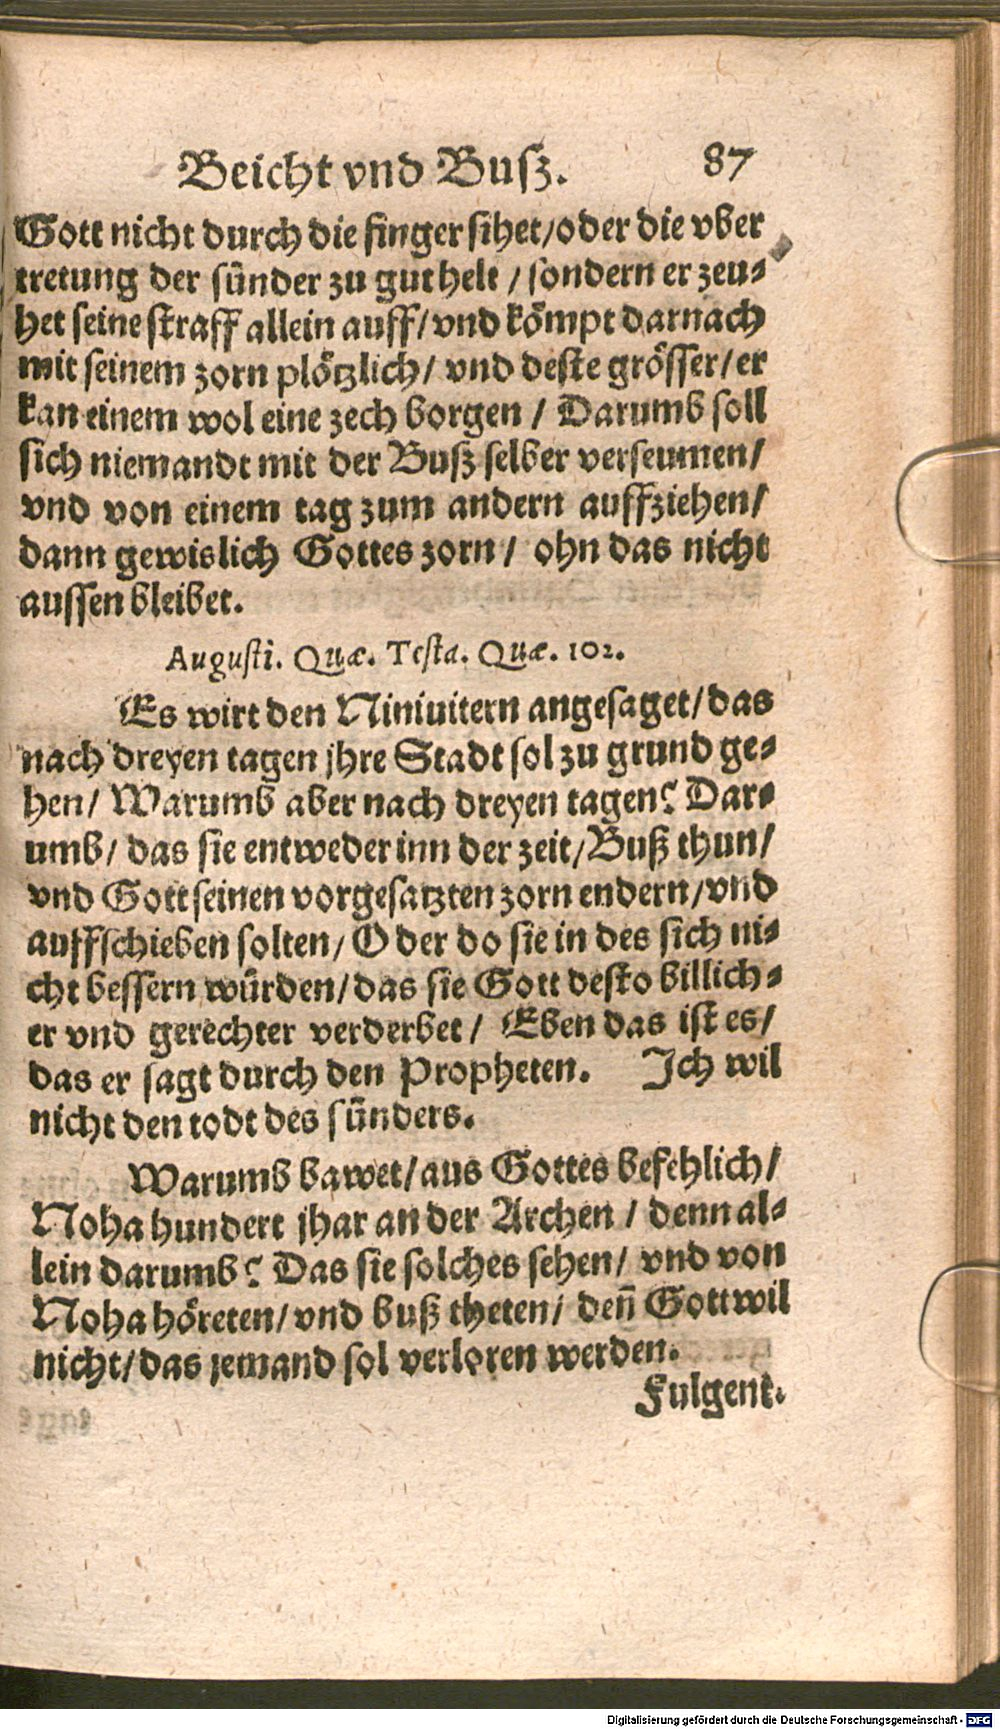 Beicht vnd Busz. 87
Gott nicht durch die finger sihet/oder die vber
tretung der sünder zu gut helt / sondern er zeu-
het seine straff allein auff/vnd kömpt darnach
mit seinem zorn plötzlich/ vnd deste grösser/er
kan einem wol eine zech borgen / Darumb soll
sich niemandt mit der Busz selber verseumen/
vnd von einem tag zum andern auffziehen/
dann gewislich Gottes zorn / ohn das nicht
aussen bleibet.
Augusti. Quæ. Testa. Quæ. 102.
Es wirt den Niniuitern angesaget/das
nach dreyen tagen jhre Stadt sol zu grund ge-
hen/ Warumb aber nach dreyen tagen? Dar-
umb/ das sie entweder inn der zeit/Buß thun/
vnd Gott seinen vorgesatzten zorn endern/vnd
auffschieben solten/ Oder do sie in des sich ni-
cht bessern würden/das sie Gott desto billich-
er vnd gerechter verderbet/ Eben das ist es/
das er sagt durch den Propheten. Ich wil
nicht den todt des sünders.
Warumb bawet/aus Gottes befehlich/
Noha hundert jhar an der Archen / denn al-
lein darumb? Das sie solches sehen/ vnd von
Noha höreten/vnd buß theten/ deñ Gott wil
nicht/das jemand sol verloren werden.
Fulgent.
Digitalisierung gefördert durch die Deutsche Forschungsgemeinschaft - DFG